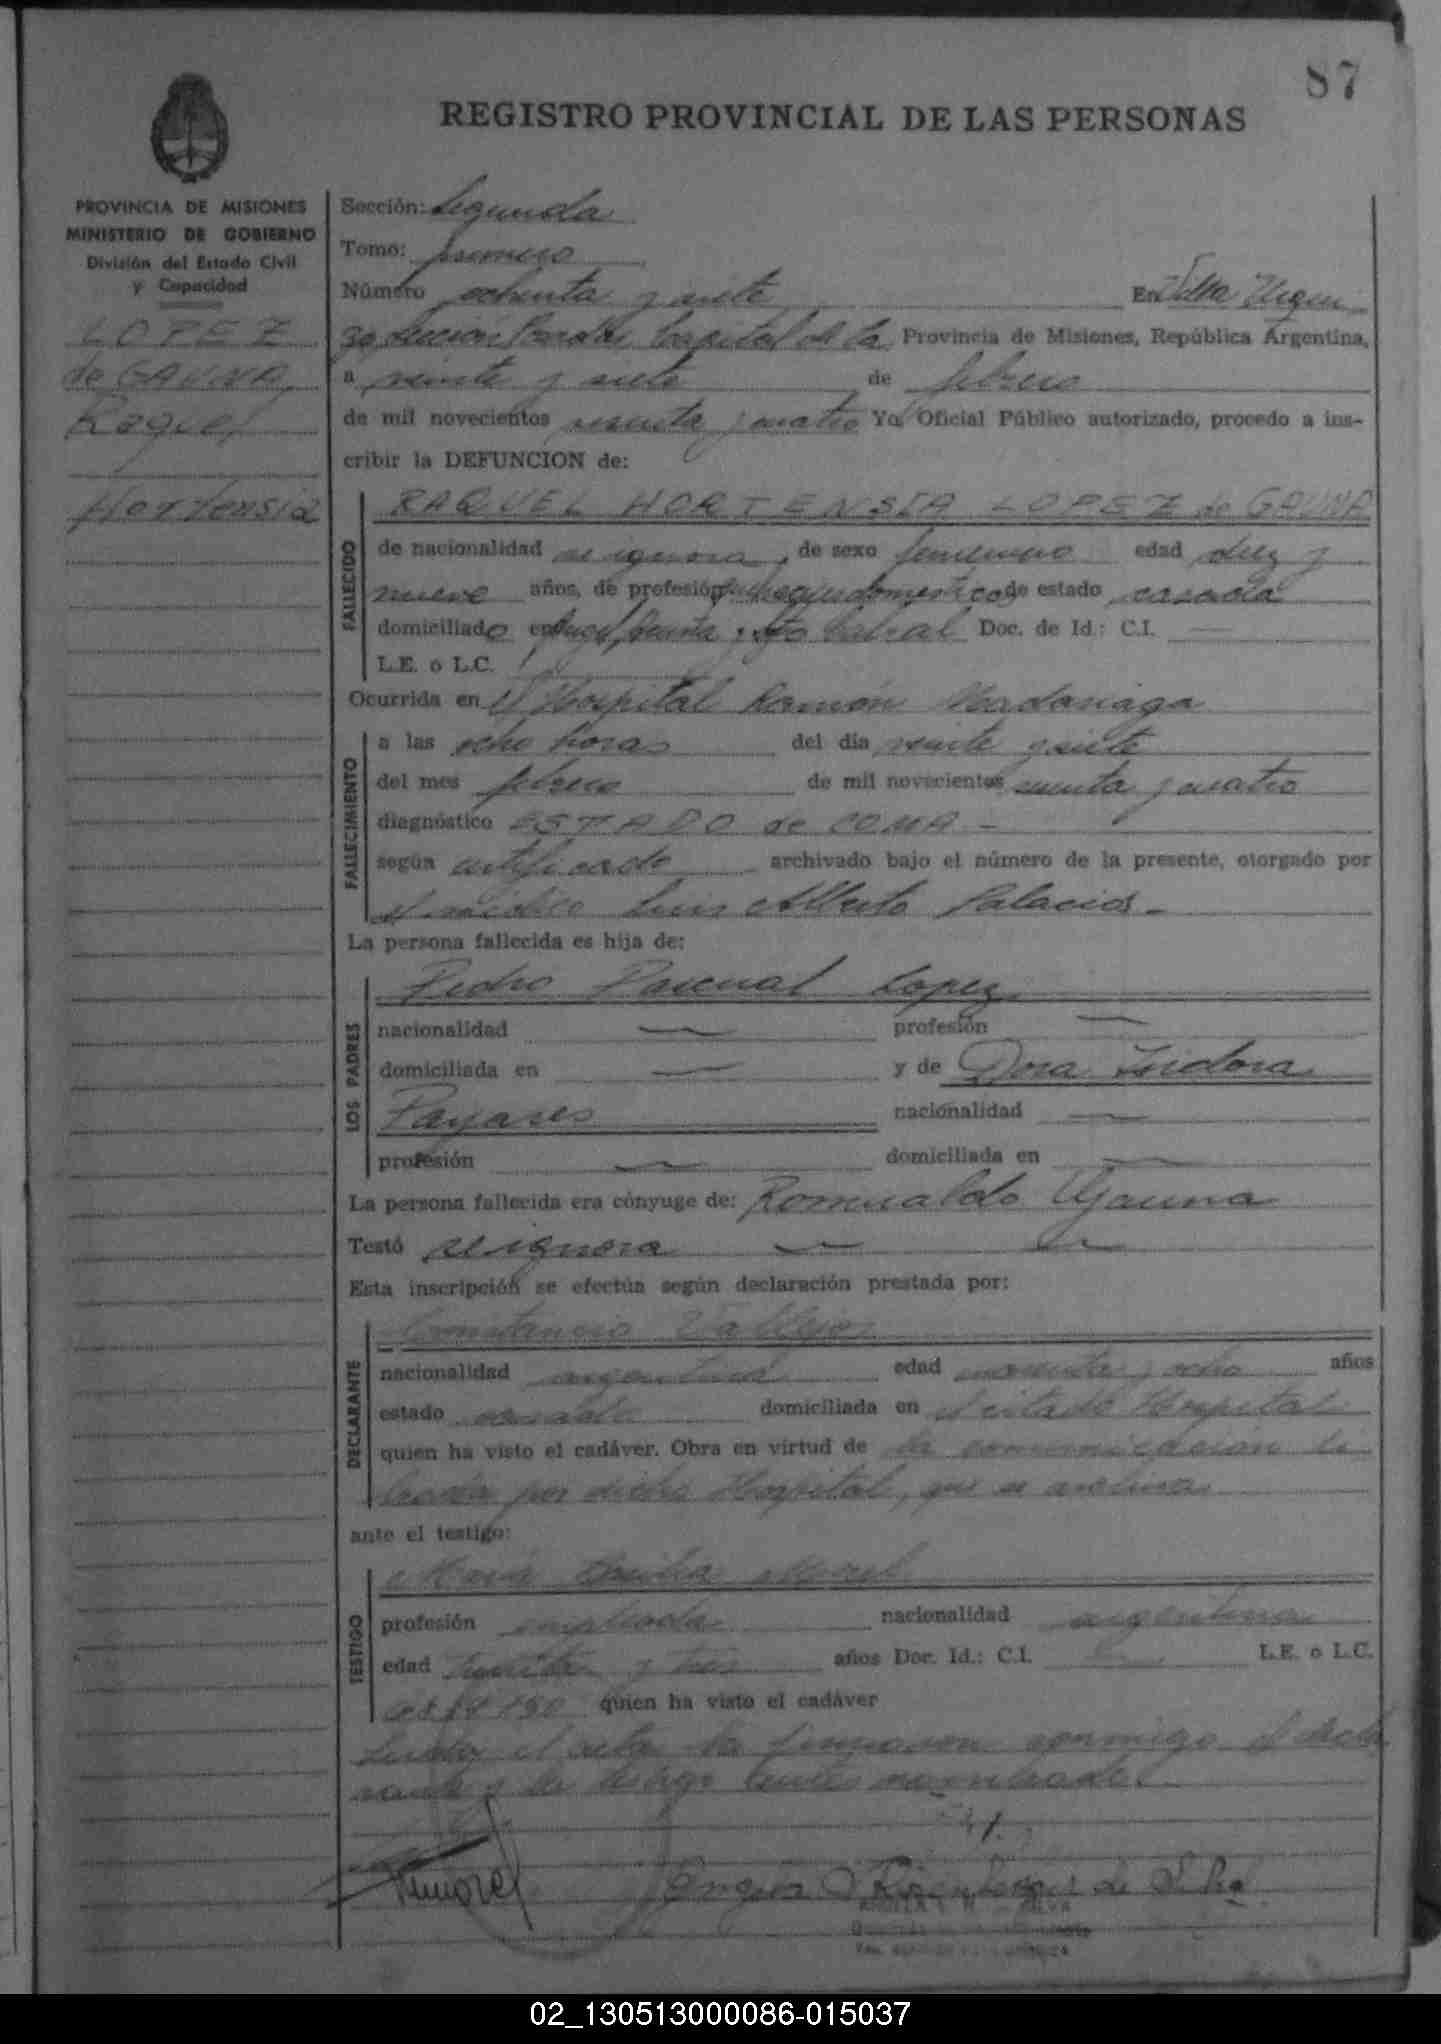 87
REGISTRO PROVINCIAL DE LAS PERSONAS
PROVINCIA DE MISIONES
MINISTERIO DE GOBIERNO
División del Estado Civil
y Capacidad
LOPEZ
de GAUNA,
Raquel
Hortensia
Sección: Segunda
Tomo: primero
Número ochenta y siete En Villa Urqui
za, Sección Posadas Capital de la Provincia de Misiones, República Argentina,
a veinte y siete de febrero
de mil novecientos sesenta y cuatro Yo, Oficial Público autorizado, procedo a ins-
cribir la DEFUNCION de:
FALLECIDO
RAQUEL HORTENSIA LOPEZ de GAUNA
de nacionalidad se ignora, de sexo femenino edad diez y
nueve años, de profesión quehaceres domesticos de estado casada
domiciliado en Cabral Doc. de Id.: C.I. —
L.E. o L.C.
Ocurrida en el Hospital Ramón Madariaga
FALLECIMIENTO
a las ocho horas del día veinte y siete
del mes febrero de mil novecientos sesenta y cuatro
diagnóstico ESTADO de COMA -
según certificado archivado bajo el número de la presente, otorgado por
el médico Luis Alberto Palacios -
La persona fallecida es hija de:
LOS PADRES
Pedro Pascual Lopez
nacionalidad — profesión —
domiciliada en — y de Dora Isidora
Payares nacionalidad —
profesión — domiciliada en —
La persona fallecida era cónyuge de: Romualdo Gauna
Testó se ignora — —
Esta inscripción se efectúa según declaración prestada por:
DECLARANTE
Constancio Vallejos
nacionalidad argentina edad y ocho años
estado casado domiciliada en el citado Hospital
quien ha visto el cadáver. Obra en virtud de la comunicación li
brada por dicho Hospital, que se archiva
ante el testigo:
TESTIGO
María Morel
profesión empleada nacionalidad argentina
edad treinta y tres años Doc. Id.: C.I. — L.E. o L.C.
quien ha visto el cadáver
Leida el acta la firmaron conmigo el decla
rante y la testigo antes nombrado.
de Silva
02_130513000086-015037